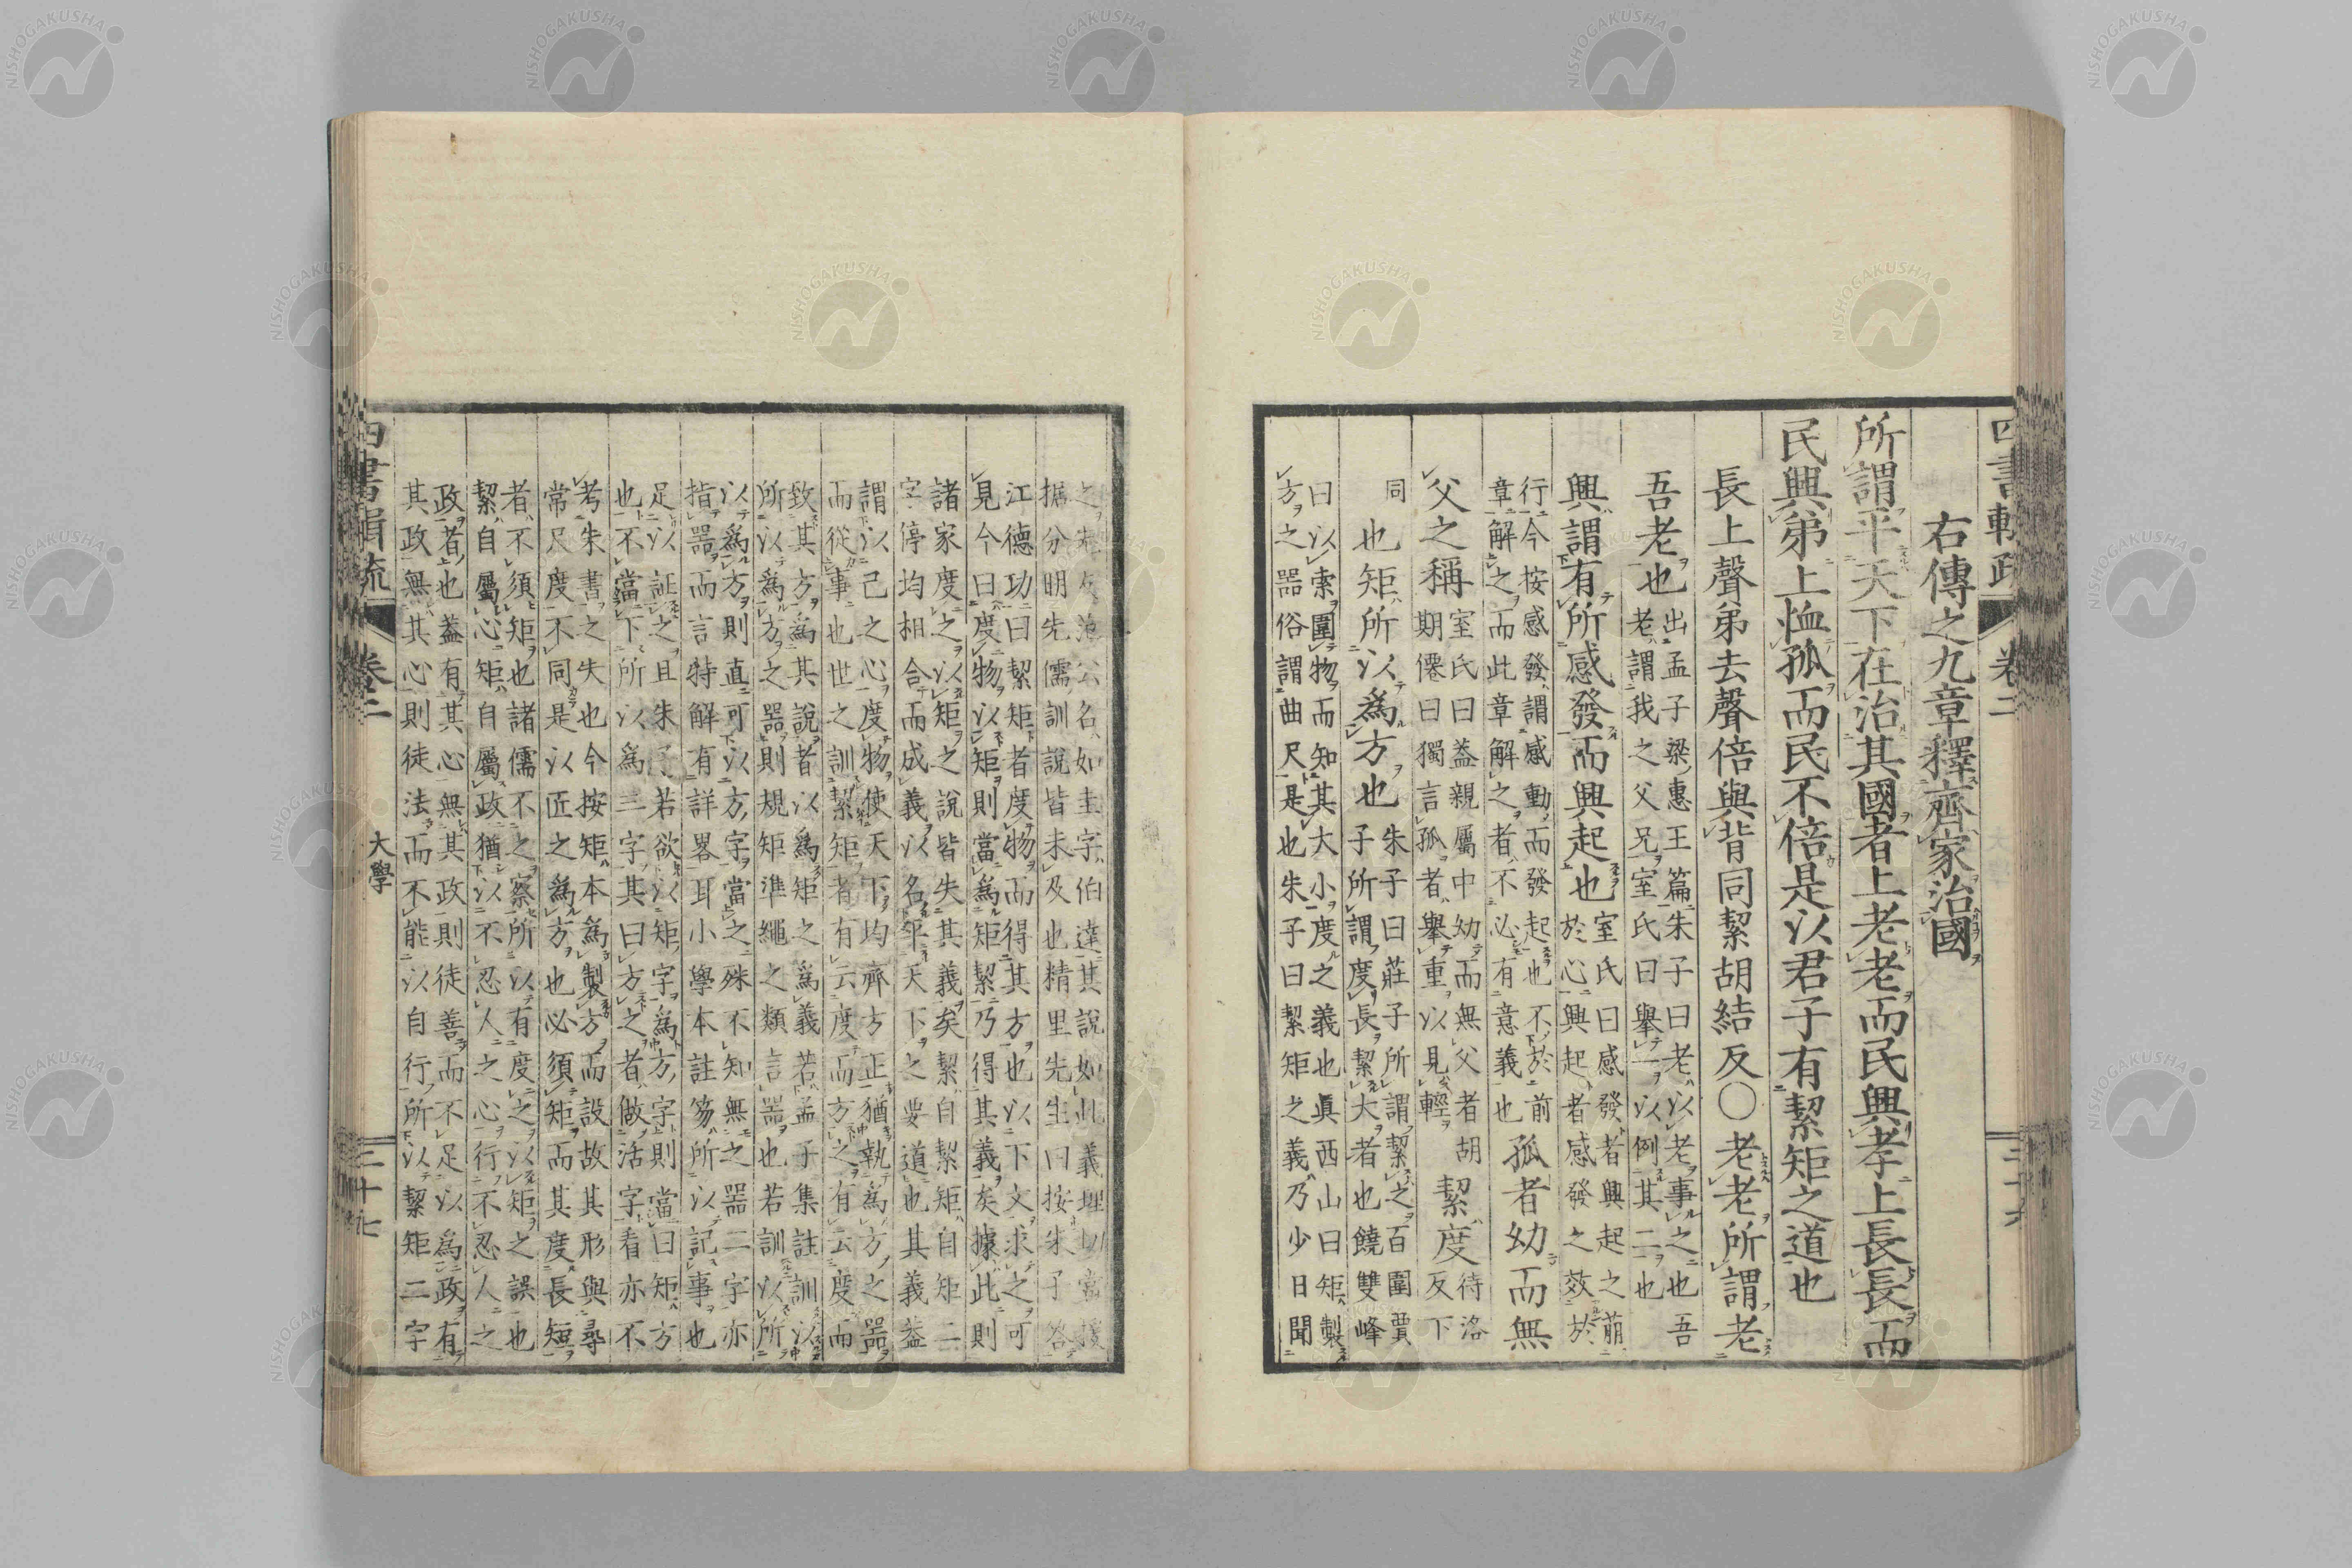 四書輯疏 卷二
右傳之九章釋齊家治國
所謂平天下在治其國者上老老而民興孝上長長而
民興弟上恤孤而民不倍是以君子有絜矩之道也
長上聲弟去聲倍與背同絜胡結反〇老老所謂老
吾老也
出孟子梁惠王篇朱子曰老以老事之也吾
老謂我之父兄室氏曰舉一以例其二也
興謂有所感發而興起也
室氏曰感發者興起之萠
於心興起者感發之效於
行今按感發謂感動而發起也不於前
章解之而此章解之者不必有意義也
孤者幼而無
父之稱
室氏曰蓋親屬中幼而無父者胡
期僊曰獨言孤者舉重以見輕
絜度
待洛
反下
同
也矩所以爲方也
朱子曰莊子所謂絜之百圍賈
子所謂度長絜大者也饒雙峰
曰以索圍物而知其大小度之義也眞西山曰矩製
方之器俗謂曲尺是也朱子曰絜矩之義乃少日聞
之 公名如圭字伯達其說如此義理切當援
據分明先儒訓說皆未及也精里先生曰按朱子答
江德功曰絜矩者度物而得其方也以下文求之可
見今曰度物以矩則當爲矩絜乃得其義矣據此則
諸家度之以矩之說皆失其義矣絜自絜矩自矩二
字停均相合而成義以名平天下之要道也其義蓋
謂以己之心度物使天下均齊方正猶執爲方之器
而從事也世之訓絜矩者有云度而方之有云度而
致其方爲其說者以爲矩之爲義若孟子集註訓以
所以爲方之器則規矩準繩之類言器也若訓以所
以爲方則直可以方字當之殊不知無之器二字亦
指器而言特解有詳畧耳小學本註笏所以記事也
足以証之且朱子若欲以矩字爲方字則當曰矩方
也不當下所以爲三字其曰方之者做活字看亦不
考朱書之失也今按矩本爲製方而設故其形與尋
常尺度不同是以匠之爲方也必須矩而其度長短
者不須矩也諸儒不之察所以有度之以矩之誤也
絜自屬心矩自屬政猶以不忍人之心行不忍人之
政者也蓋有其心無其政則徒善而不足以爲政有
其政無其心則徒法而不能以自行所以絜矩二字
四書輯疏 卷二 大學 三十七